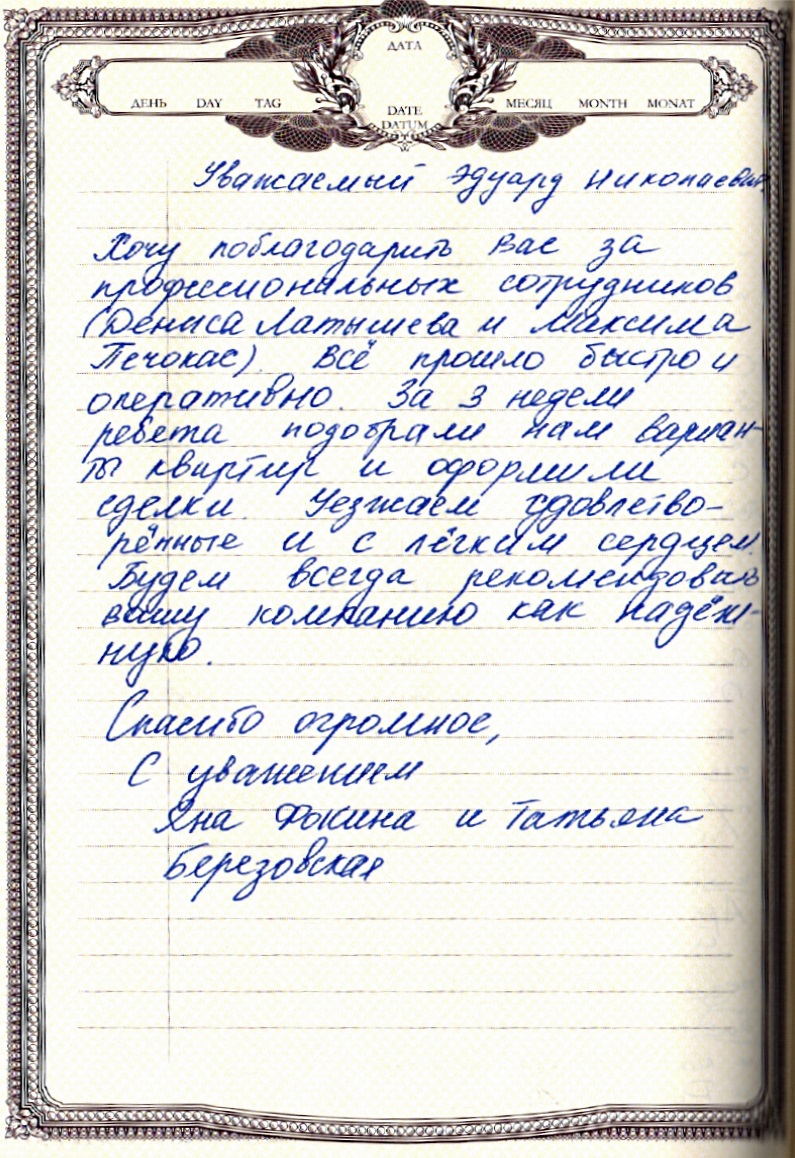 ДАТА
ДЕНЬ DAY TAG DATE МЕСЯЦ MONTH MONAT
DATUM
Уважаемый Эдуард Николаевич
Хочу поблагодарить Вас за
профессиональных сотрудников
(Дениса Латышева и Максима
Печокас). Всё прошло быстро и
оперативно. За 3 недели
ребята подобрали нам вариан-
ты квартир и оформили
сделки. Уезжаем удовлетво-
рённые и с лёгким сердцем.
Будем всегда рекомендовать
вашу компанию как надёж-
ную.
Спасибо огромное,
С уважением
Яна Фокина и Татьяна
Березовская